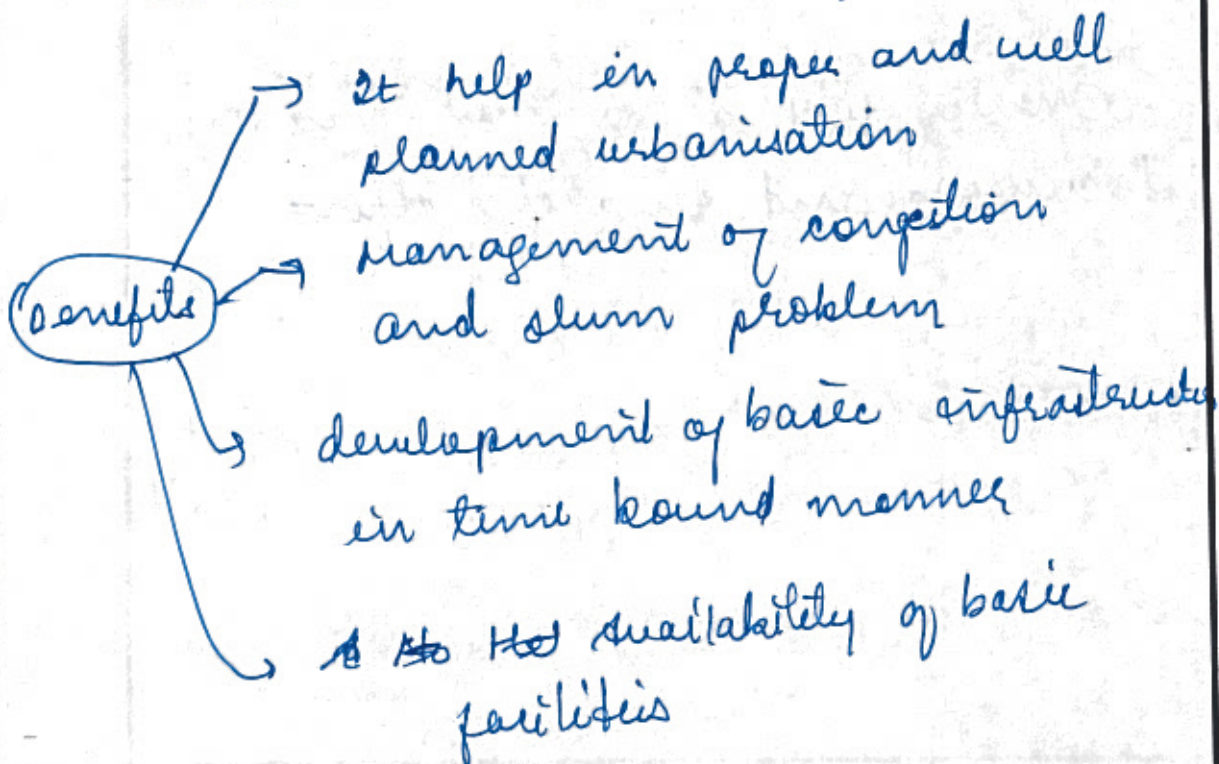 It help in proper and well
planned urbanisation
Management of congestion
and slum problem
benefits
development of basic infrastructu
in time bound manner
availability of basic
facilities